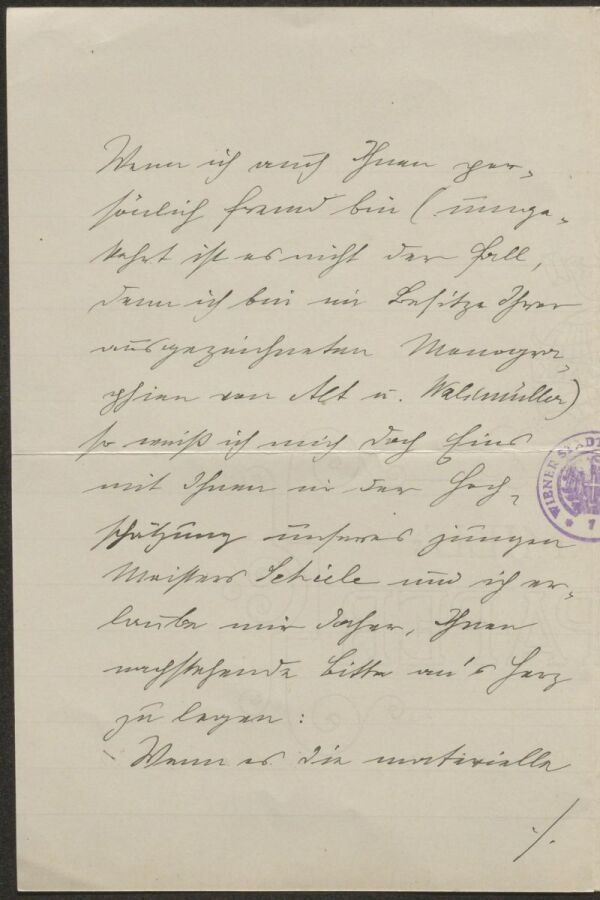 Wenn ich auch Ihnen per-
sönlich fremd bin (umge-
kehrt ist es nicht der Fall,
denn ich bin im Besitze Ihrer
ausgezeichneten Monogra-
phien von Alt u. Waldmüller)
so weiß ich mich doch Eins
mit Ihnen in der Hoch-
schätzung unseres jungen
Meisters Schiele und ich er-
laube mir daher, Ihnen
nachstehende Bitte an's Herz
zu legen:
Wenn es die materielle
./.
WIENER STADT
* 7